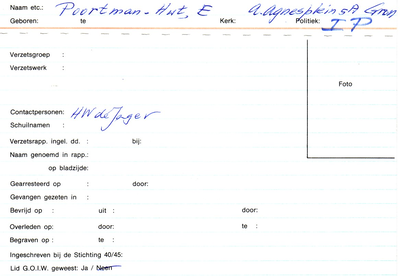 Naam etc.: Poortman - Hut, E A. Agnesplein 5A Gron
Geboren: te Kerk: Politiek: IP
Verzetsgroep :
Verzetswerk :
Foto
Contactpersonen: HW de Jager
Schuilnamen :
Verzetsrapp. ingel. dd. : bij:
Naam genoemd in rapp.:
op bladzijde:
Gearresteerd op : door:
Gevangen gezeten in :
Bevrijd op : uit : door:
Overleden op: door: te :
Begraven op : te :
Ingeschreven bij de Stichting 40/45:
Lid G.O.I.W. geweest: Ja / Neen